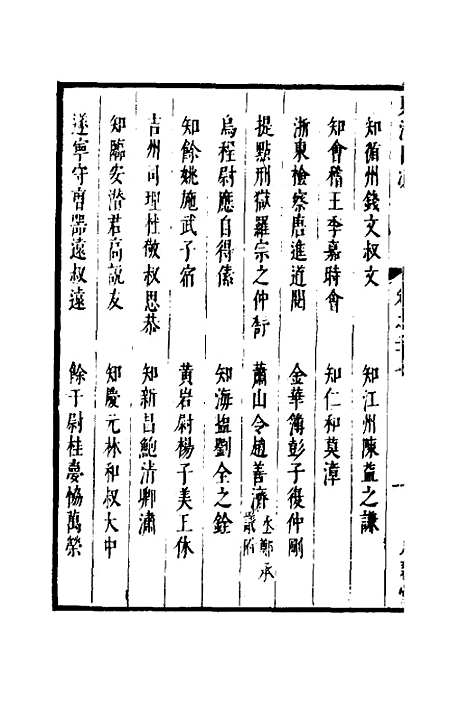 知衢州錢文叔文
知江州陳益之謙
知會稽王季嘉時會
知仁和莫漳
浙東檢察唐進道閱
金華簿彭子復仲剛
提點刑獄羅宗之仲
蕭山令趙善濟
丞鄭承
烏程尉應自得傃
知海鹽劉全之銓
知餘姚施武子宿
黃岩尉楊子美王休
吉州司理杜徵叔思恭
知新昌鮑清卿潚
知臨安潛君高說友
知慶元林和叔大中
遂寧守曹器遠叔遠
餘于尉桂夢協萬榮